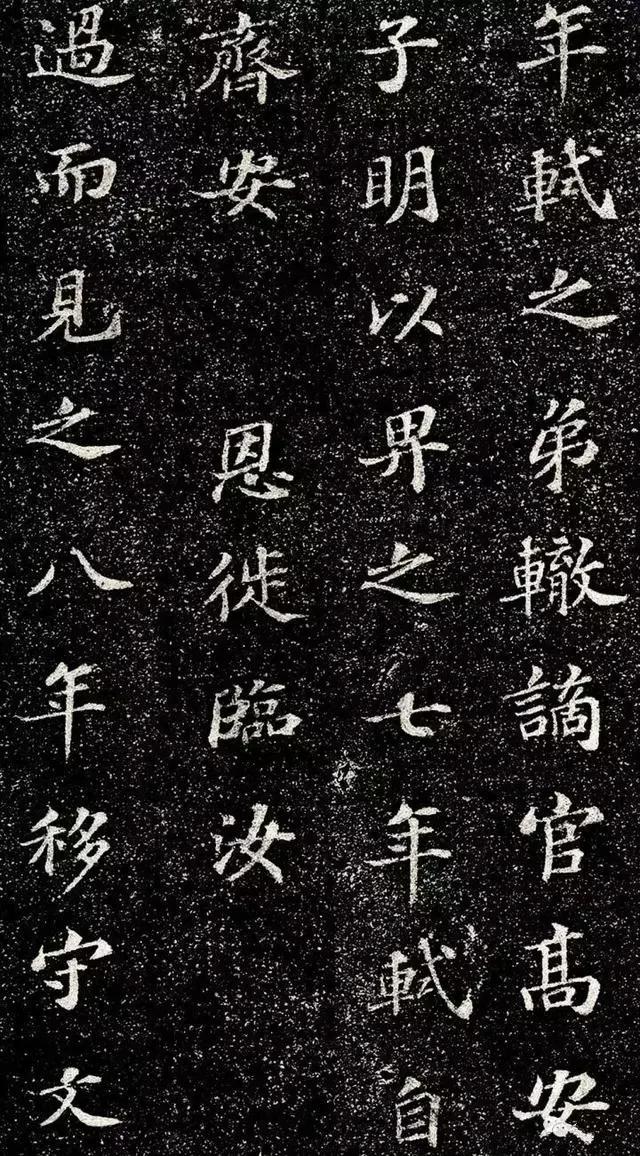 年軾之弟轍謫官高安
子明以畀之七年軾自
齊安 恩徙臨汝
過而見之八年移守文